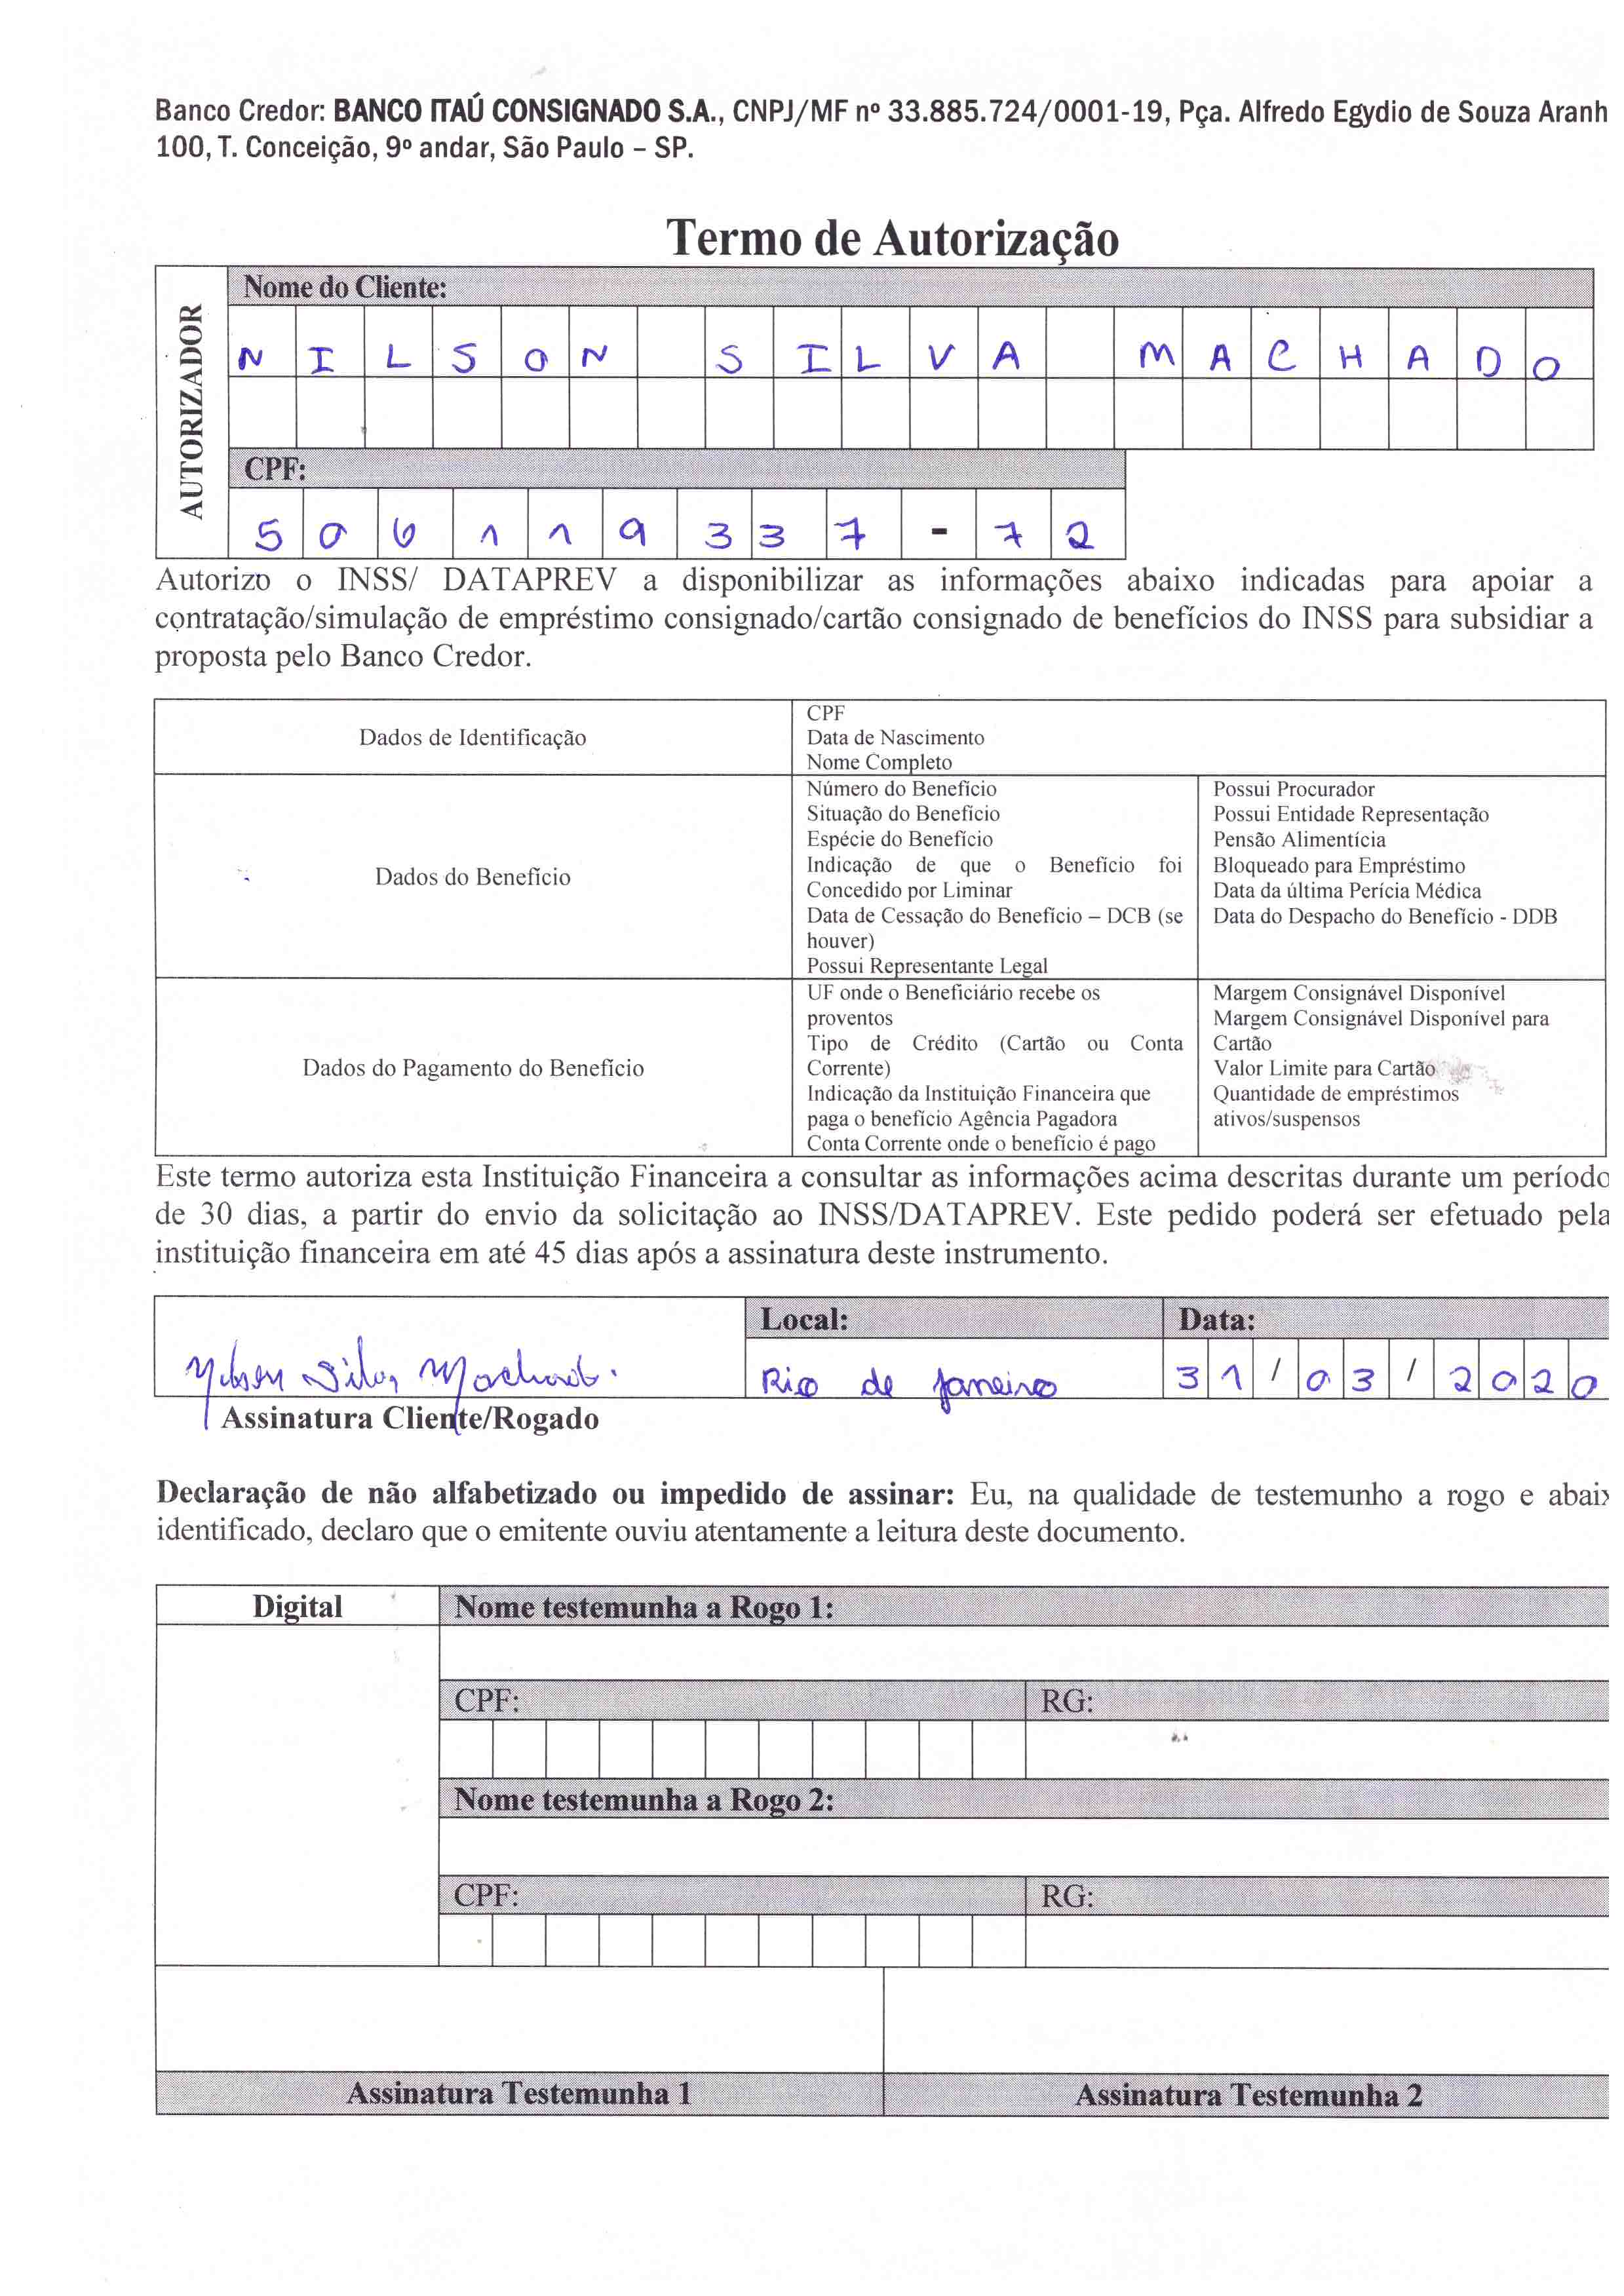 Banco Credor: BANCO ITAÚ CONSIGNADO S.A., CNPJ/MF nº 33.885.724/0001-19, Pça. Alfredo Egydio de Souza Aranh
100, T. Conceição, 9º andar, São Paulo – SP.
Termo de Autorização
AUTORIZADOR
Nome do Cliente:
NILSON SILVA MACHADO
CPF:
506119337-72
Autorizo o INSS/ DATAPREV a disponibilizar as informações abaixo indicadas para apoiar a
contratação/simulação de empréstimo consignado/cartão consignado de benefícios do INSS para subsidiar a
proposta pelo Banco Credor.
Dados de Identificação
CPF
Data de Nascimento
Nome Completo
Dados do Benefício
Número do Benefício
Situação do Benefício
Espécie do Benefício
Indicação de que o Benefício foi
Concedido por Liminar
Data de Cessação do Benefício – DCB (se
houver)
Possui Representante Legal
Possui Procurador
Possui Entidade Representação
Pensão Alimentícia
Bloqueado para Empréstimo
Data da última Perícia Médica
Data do Despacho do Benefício - DDB
Dados do Pagamento do Benefício
UF onde o Beneficiário recebe os
proventos
Tipo de Crédito (Cartão ou Conta
Corrente)
Indicação da Instituição Financeira que
paga o benefício Agência Pagadora
Conta Corrente onde o benefício é pago
Margem Consignável Disponível
Margem Consignável Disponível para
Cartão
Valor Limite para Cartão
Quantidade de empréstimos
ativos/suspensos
Este termo autoriza esta Instituição Financeira a consultar as informações acima descritas durante um período
de 30 dias, a partir do envio da solicitação ao INSS/DATAPREV. Este pedido poderá ser efetuado pela
instituição financeira em até 45 dias após a assinatura deste instrumento.
Nilson Silva Machado.
Assinatura Cliente/Rogado
Local:
Rio de Janeiro
Data:
31/03/2020
Declaração de não alfabetizado ou impedido de assinar: Eu, na qualidade de testemunho a rogo e abaix
identificado, declaro que o emitente ouviu atentamente a leitura deste documento.
Digital
Nome testemunha a Rogo 1:
CPF:
RG:
Nome testemunha a Rogo 2:
CPF:
RG:
Assinatura Testemunha 1
Assinatura Testemunha 2